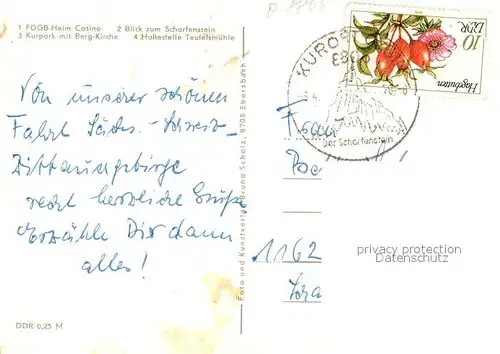 1 FDGB-Heim Casino 2 Blick zum Scharfenstein
3 Kurpark mit Berg-Kirche 4 Haltestelle Teufelsmühle
KURO
Der Scharfenstein
10
DDR
Hagebutten
Von unserer schönen
Fahrt
Zittauergebirge
recht herzliche Grüße
Erzähle Dir dann
alles!
Foto und Kunstverlag Bruno Scholz, 8705 Ebersbach
Frau
1162
privacy protection
Datenschutz
DDR 0,25 M